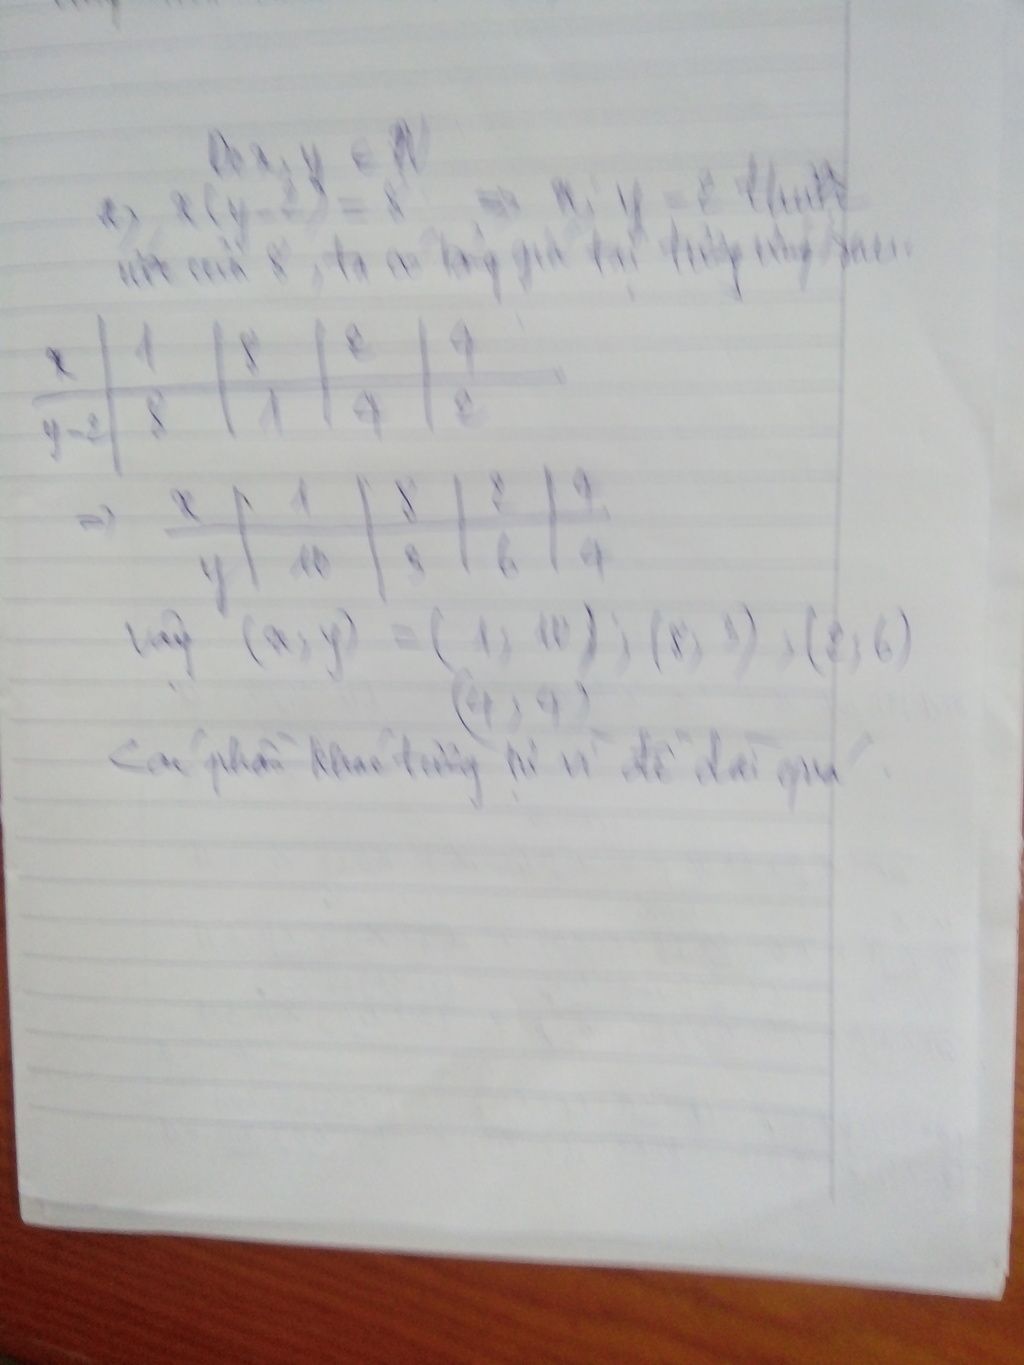 Do x, y ∈ N
a, x(y-2) = 8 => x, y-2 thuộc
ước của 8, ta có bảng giá trị tương ứng sau:
x | 1 | 8 | 2 | 4
y-2 | 8 | 1 | 4 | 2
=> x | 1 | 8 | 2 | 4
y | 10 | 3 | 6 | 4
Vậy (x, y) = (1, 10); (8, 3); (2; 6)
(4; 4)
Các phần khác tương tự vì đề dài quá